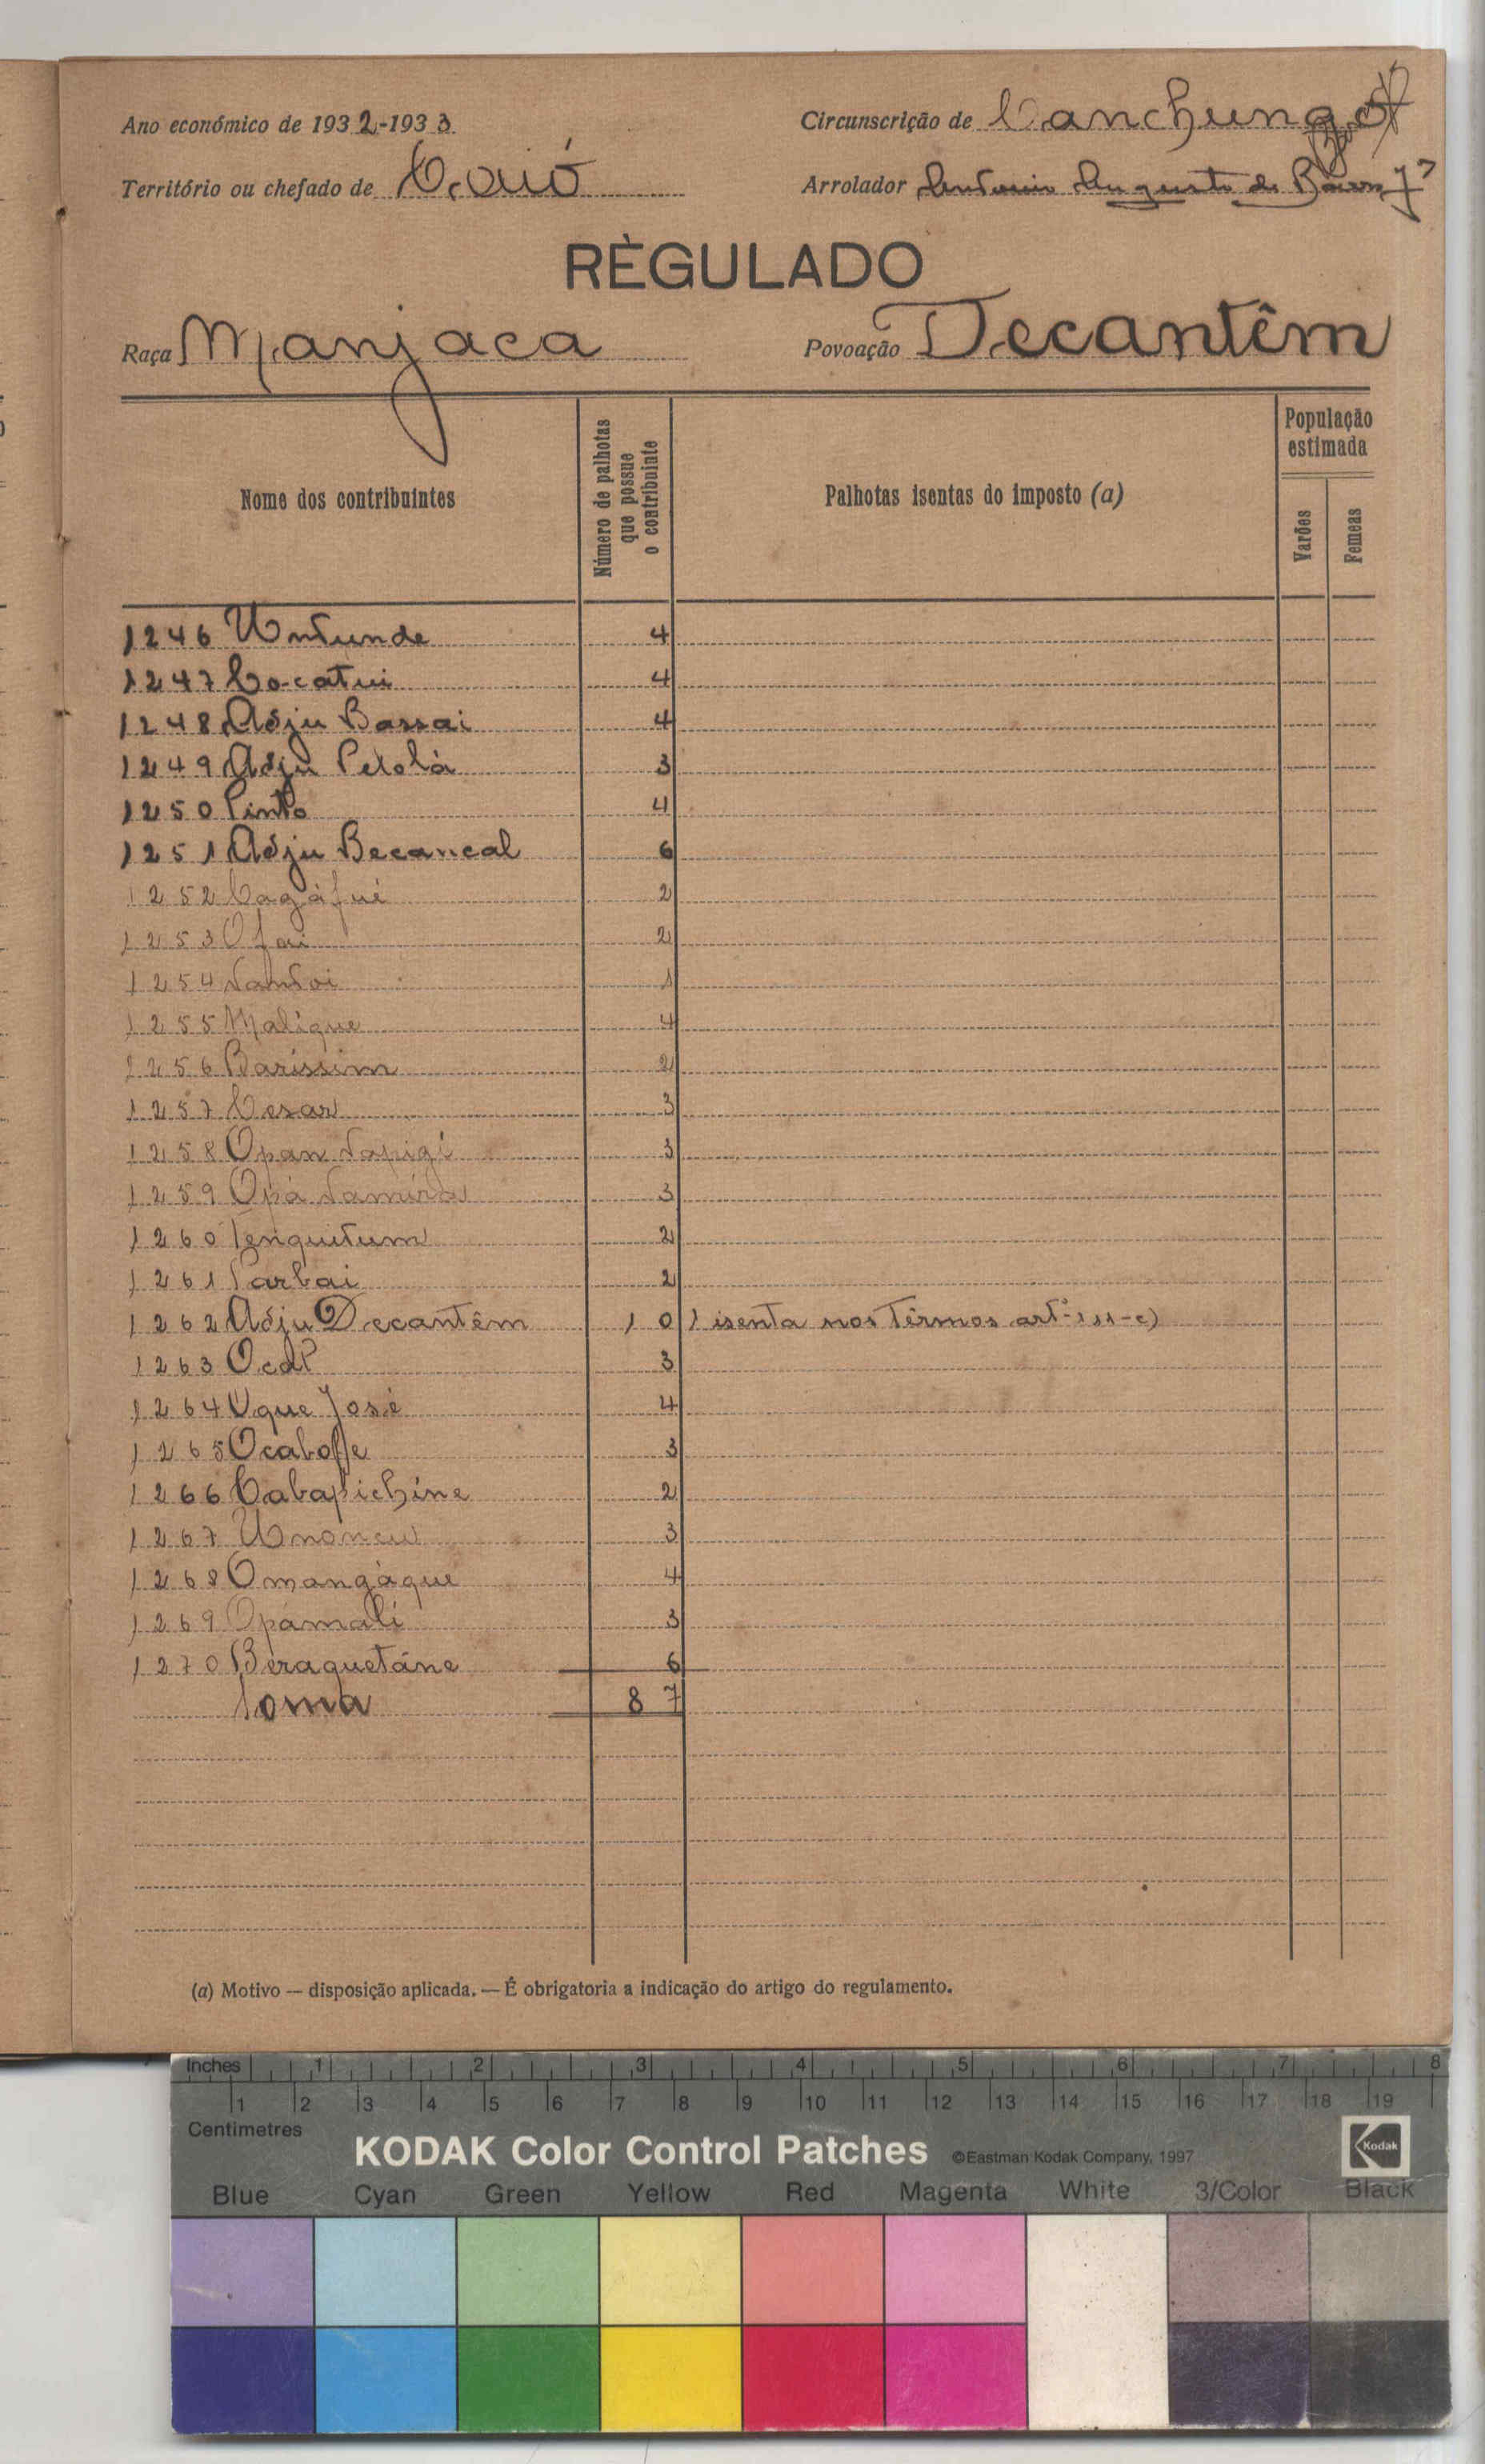 Ano económico de 1932-1933
Circunscrição de Canchungo
Território ou chefado de Caió
Arrolador Antonio Augusto de Barros Jor
RÈGULADO
Raça Manjaca
Povoação Decantêm
Nome dos contribuintes
Número de palhotas que possue o contribuinte
Palhotas isentas do imposto (a)
População estimada
Varões
Femeas
1246 Untunde 4
1247 Co-catui 4
1248 Adju Bassai 4
1249 Adju Petolà 3
1250 Pinto 4
1251 Adju Becancal 6
1252 Cagàfué 2
1253 Ofai 2
1254 1
1255 Malique 4
1256 Barissim 2
1257 Cesar 3
1258 Opan 3
1259 Opà 3
1260 Tenquitum 2
1261 Parbai 2
1262 Adju Decantêm 10 1 isenta nos têrmos artº
1263 3
1264 Uque José 4
1265 Ocaboffe 3
1266 Cabapichine 2
1267 Unoncu 3
1268 Omangàque 4
1269 Opámali 3
1270 Beraquetáne 6
Soma 87
(a) Motivo — disposição aplicada. — É obrigatoria a indicação do artigo do regulamento.
Inches 1 2 3 4 5 6 7 8
1 2 3 4 5 6 7 8 9 10 11 12 13 14 15 16 17 18 19
Centimetres
KODAK Color Control Patches ©Eastman Kodak Company, 1997 Kodak
Blue Cyan Green Yellow Red Magenta White 3/Color Black